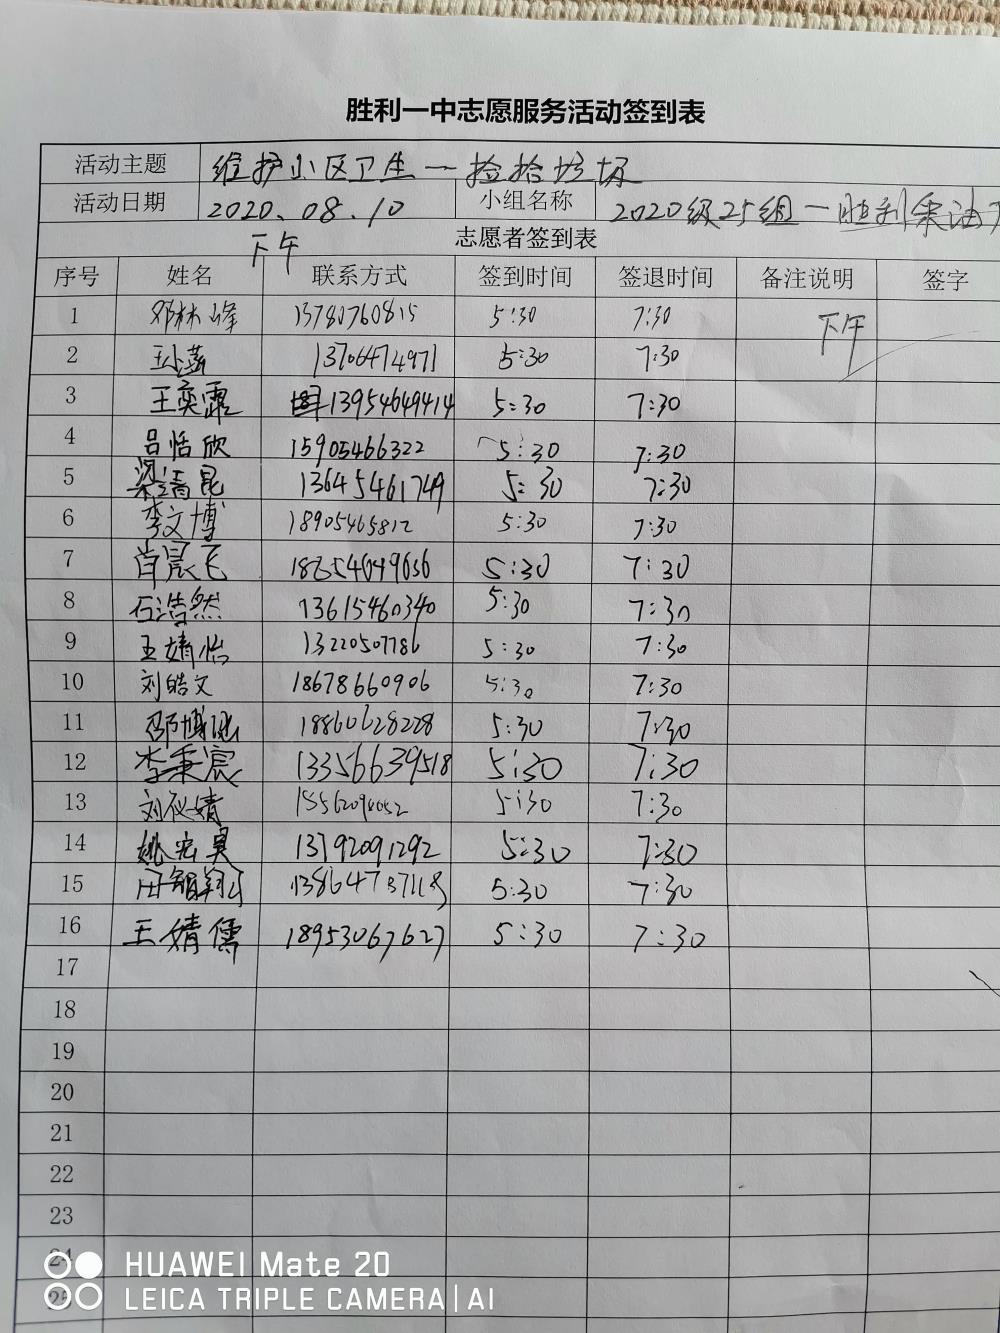 胜利一中志愿服务活动签到表
活动主题 维护小区卫生一捡拾垃圾
活动日期 2020.08.10 小组名称 2020级25组一胜利采油
下午 志愿者签到表
序号 姓名 联系方式 签到时间 签退时间 备注说明 签字
1 邓林峰 13780760815 5:30 7:30 下午
2 13706474971 5:30 7:30
3 王奕霏 13954649414 5:30 7:30
4 吕恬欣 15905466322 5:30 7:30
5 梁靖昆 13645461749 5:30 7:30
6 李文博 18905465812 5:30 7:30
7 肖晨飞 5:30 7:30
8 石浩然 13615460340 5:30 7:30
9 王婧怡 13220507786 5:30 7:30
10 刘皓文 18678660906 5:30 7:30
11 18860628228 5:30 7:30
12 李秉宸 13356639518 5:30 7:30
13 刘仪婧 5:30 7:30
14 姚宏昊 13792091292 5:30 7:30
15 5:30 7:30
16 王婧儒 18953067627 5:30 7:30
17
18
19
20
21
22
23
24
25
HUAWEI Mate 20
LEICA TRIPLE CAMERA | AI